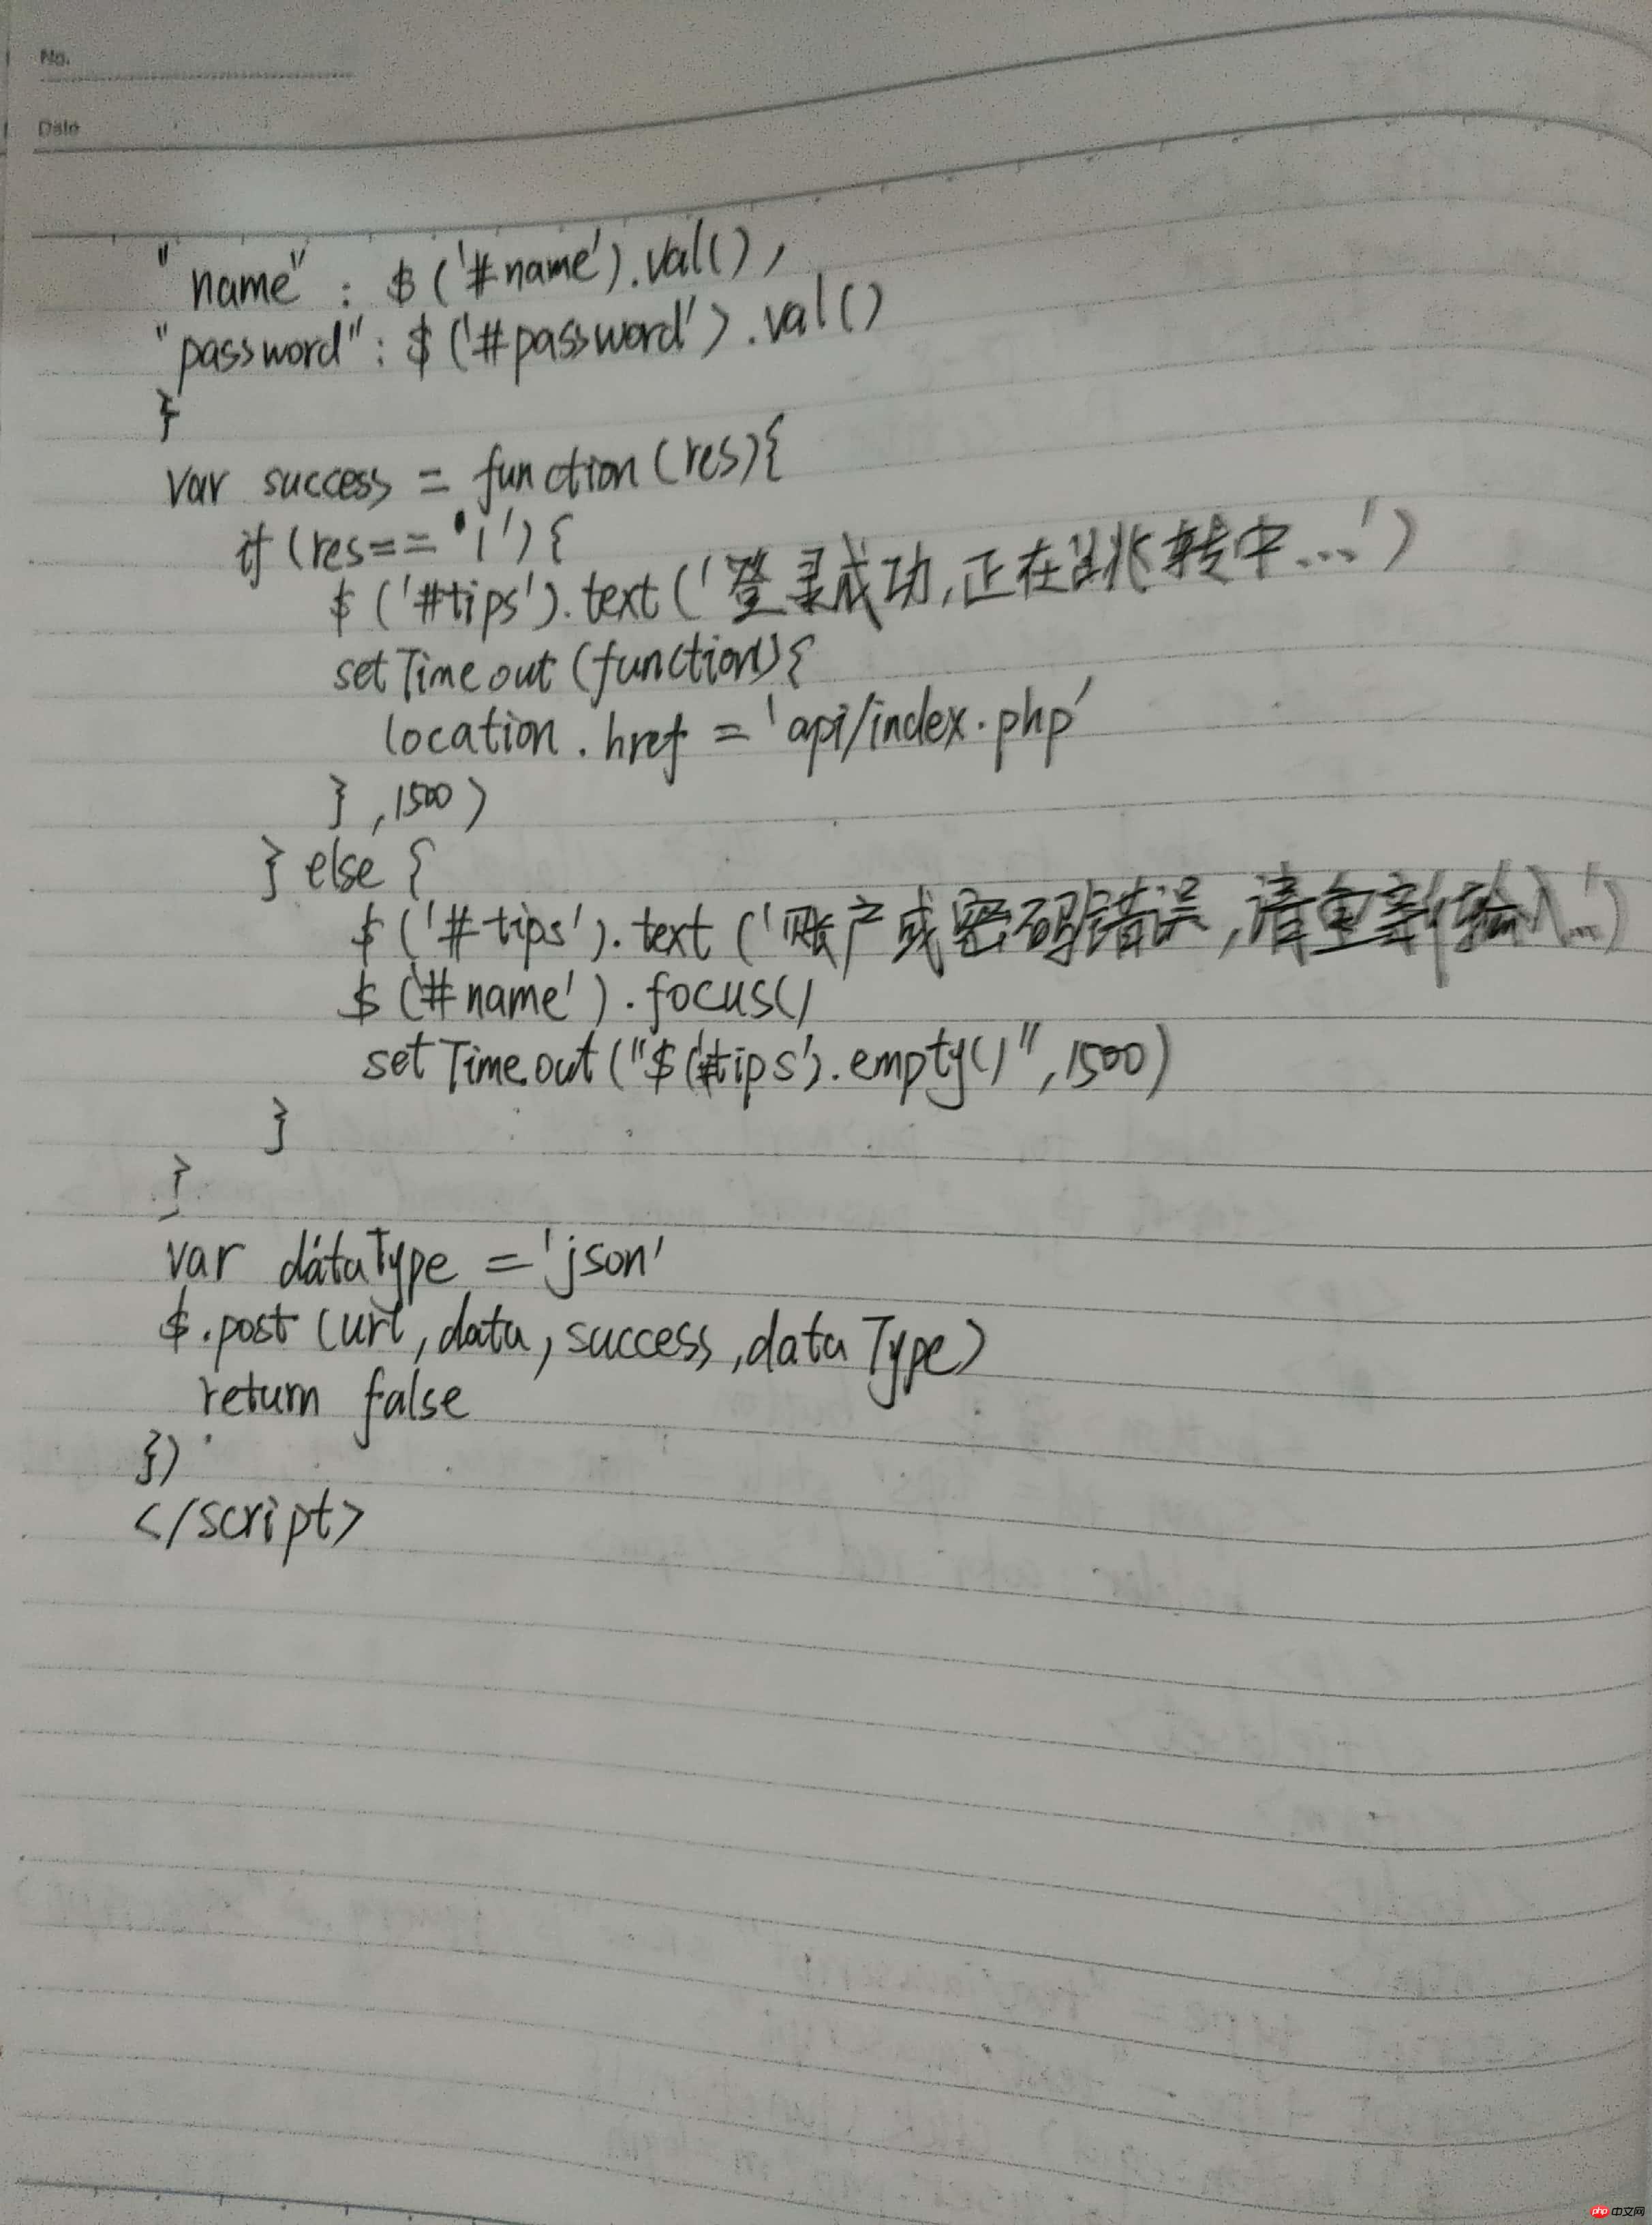 No.
Date
"name" : $('#name').val(),
"password": $('#password').val()
}
var success = function(res){
if(res=='1'){
$('#tips').text('登录成功,正在跳转中...')
setTimeout(function){
location.href = 'api/index.php'
},1500)
} else {
$('#tips').text('账户或密码错误,请重新输入...')
$('#name').focus()
setTimeout("$('#tips').empty()",1500)
}
}
var dataType = 'json'
$.post(url,data,success,dataType)
return false
})
</script>
php中文网